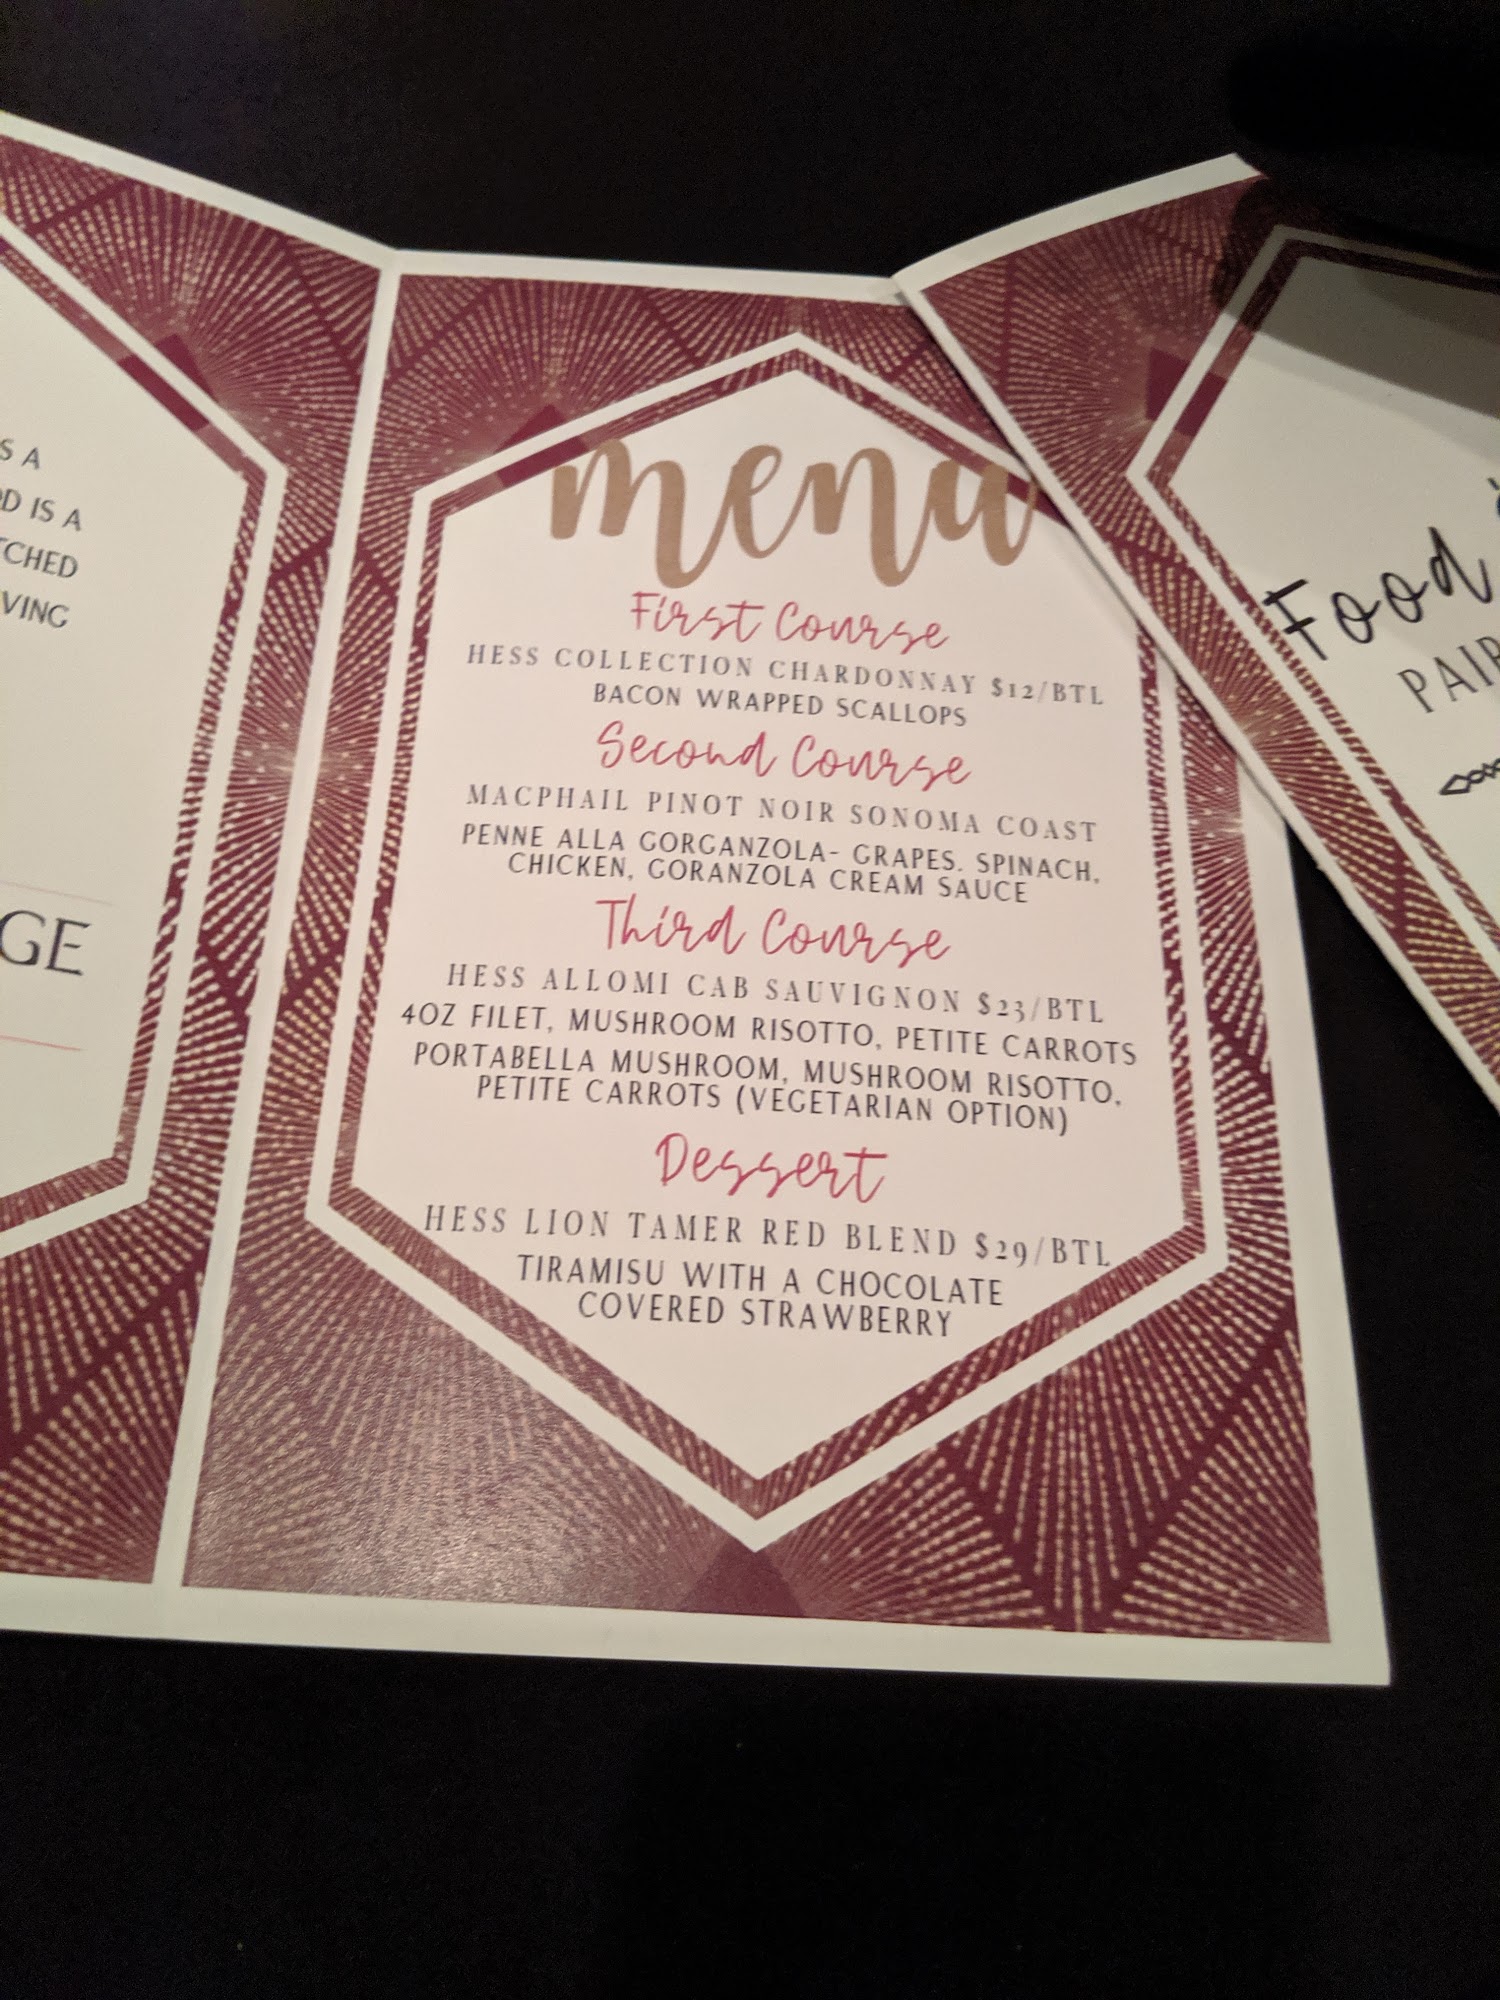 S A
D IS A
TCHED
VING
GE
menu
First Course
HESS COLLECTION CHARDONNAY $12/BTL
BACON WRAPPED SCALLOPS
Second Course
MACPHAIL PINOT NOIR SONOMA COAST
PENNE ALLA GORGANZOLA- GRAPES. SPINACH,
CHICKEN, GORANZOLA CREAM SAUCE
Third Course
HESS ALLOMI CAB SAUVIGNON $23/BTL
4OZ FILET, MUSHROOM RISOTTO, PETITE CARROTS
PORTABELLA MUSHROOM, MUSHROOM RISOTTO,
PETITE CARROTS (VEGETARIAN OPTION)
Dessert
HESS LION TAMER RED BLEND $29/BTL
TIRAMISU WITH A CHOCOLATE
COVERED STRAWBERRY
Food
PAIR